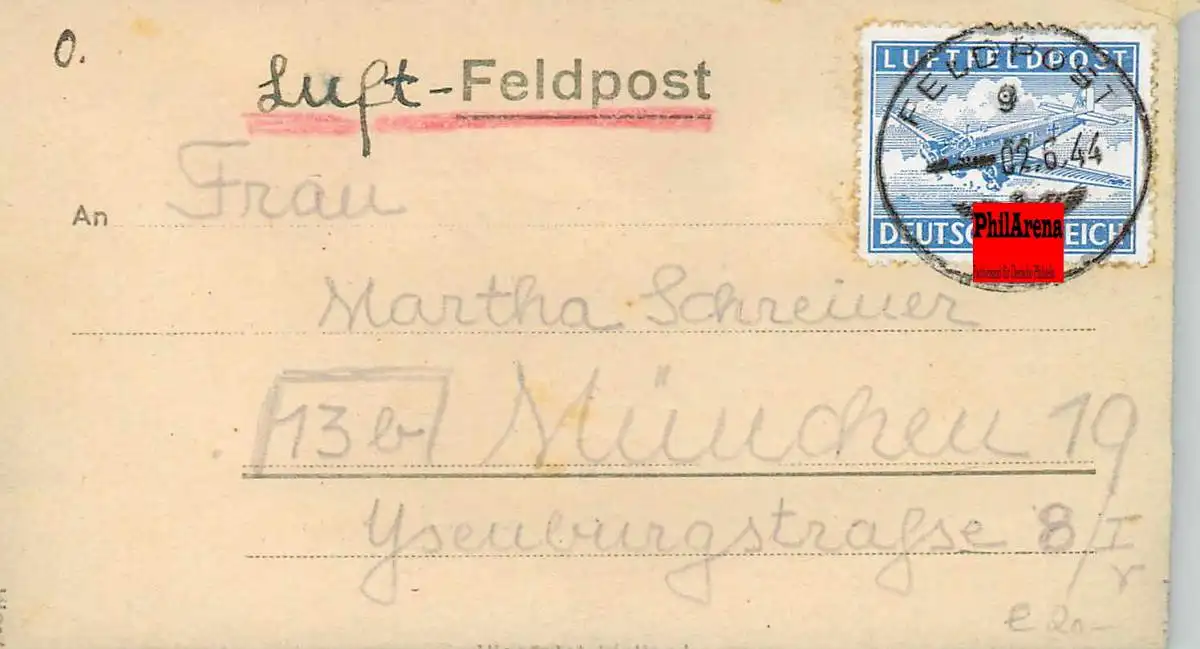 O.
Luft-Feldpost
LUFTFELDPOST
FELDPOST
g
02.6.44
DEUTSC REICH
PhilArena
An Frau
Martha Schreiner
13b München 19
Ysenburgstraße 8/I
r
€ 20-